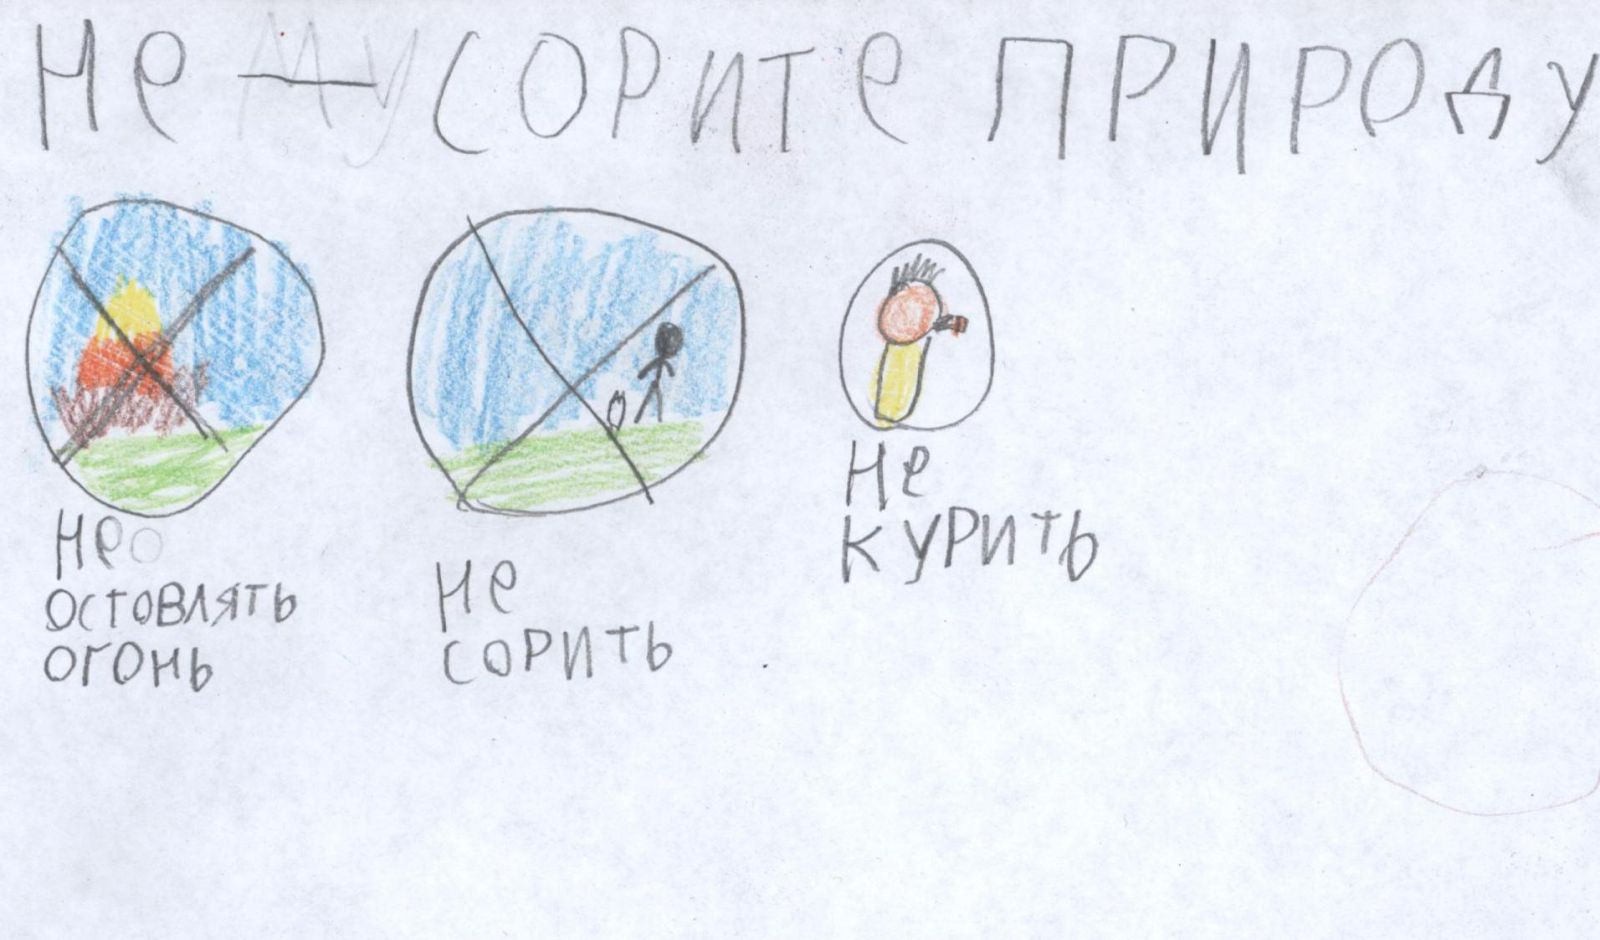 Не сорите природу
Не
остовлять
огонь
Не
сорить
Не
курить